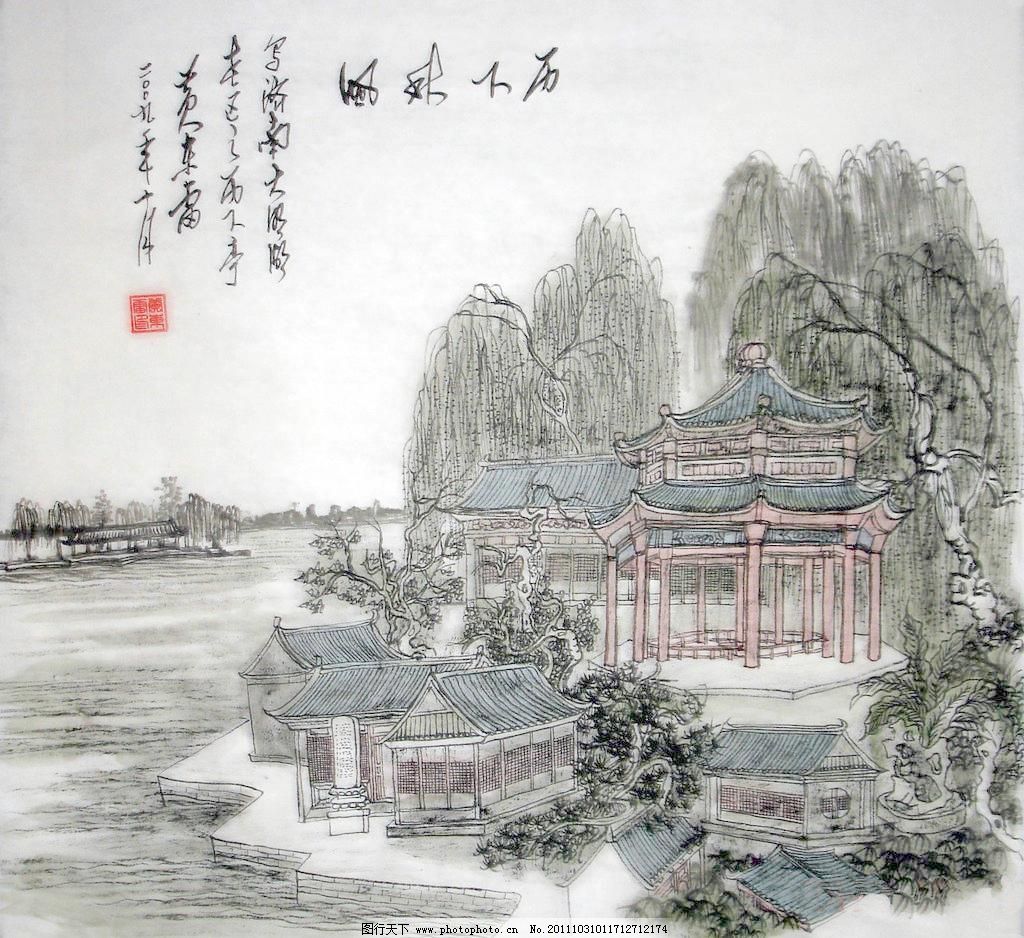 历下秋风
写济南大明湖
区之历下亭
黄东雷
二〇〇九年十月
黄东雷印
图行天下 www.photophoto.cn No.20111031011712712174